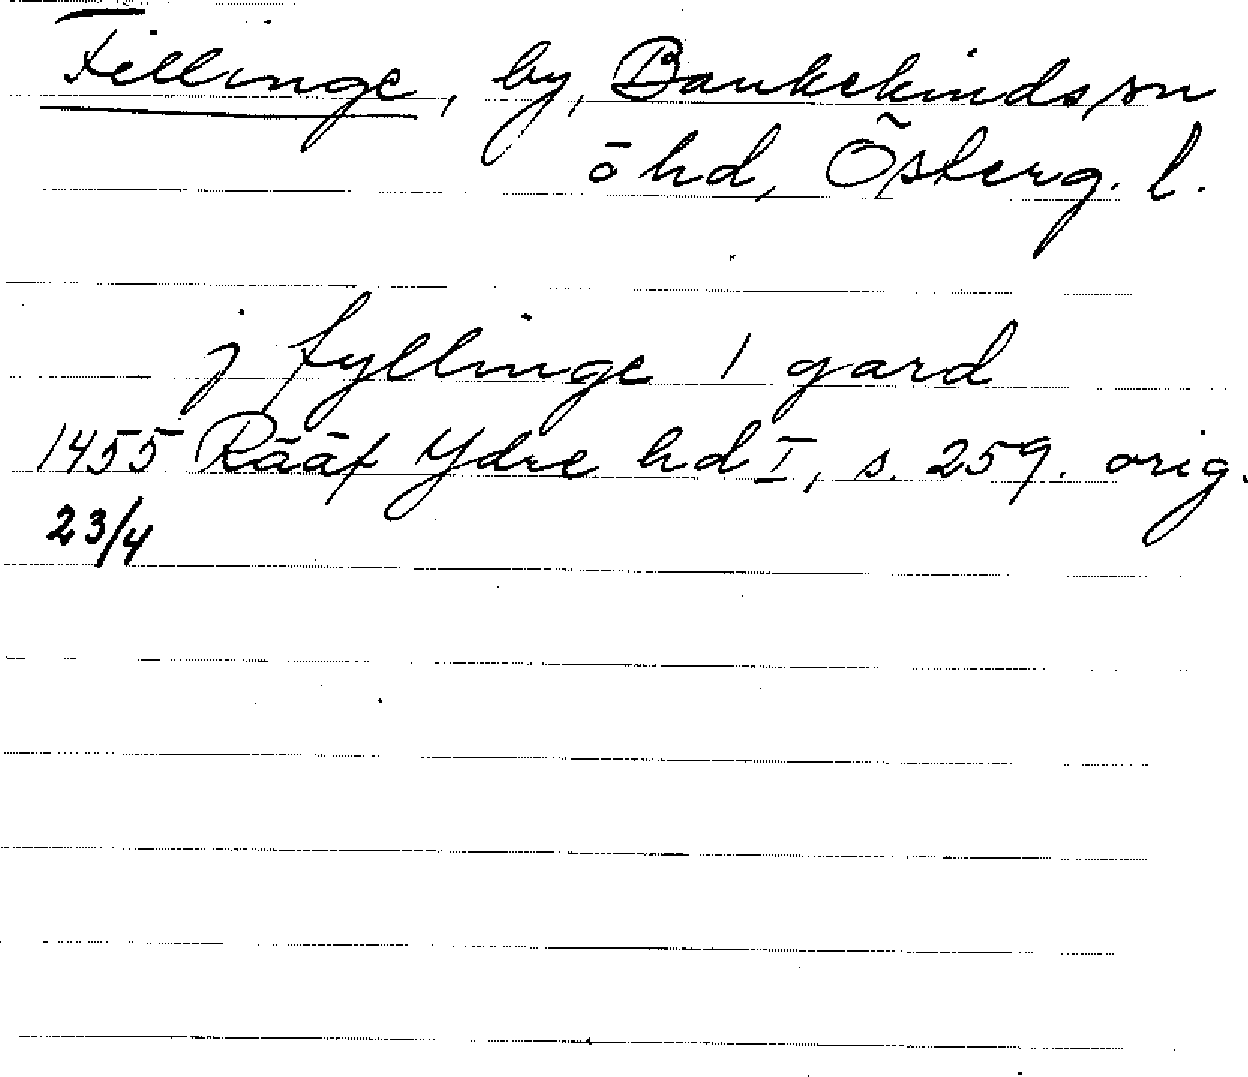 Fillinge, by, Bankekinds sn
ö hd, Österg. l.
j fyllinge 1 gard
1455 Rääf Ydre hd I, s. 259. orig.
23/4